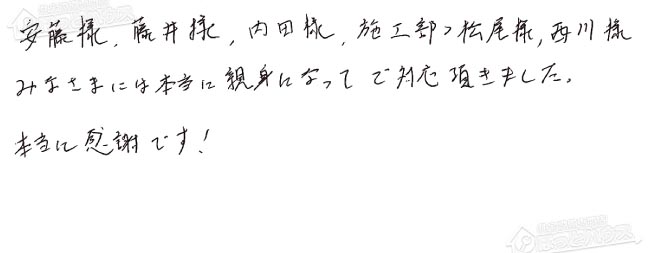 安藤様、藤井様、内田様、施工部の松尾様、西川様
みなさまには本当に親身になってご対応頂きました。
本当に感謝です！